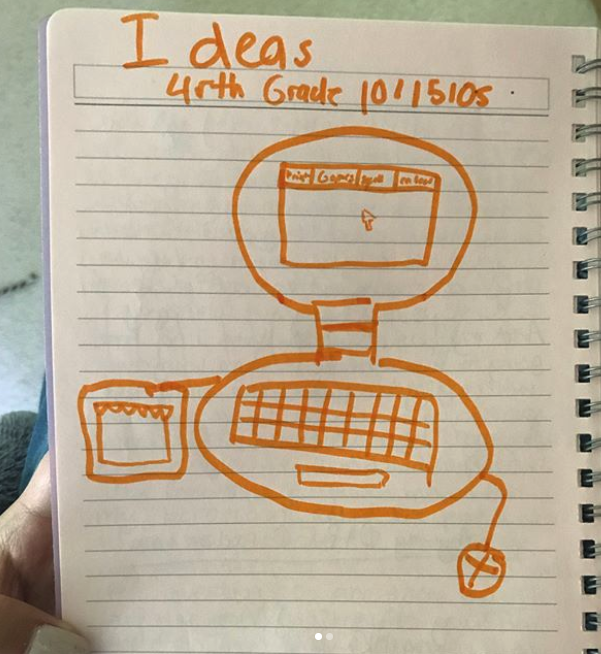 Ideas
4rth Grade 10/15/05
Print Games